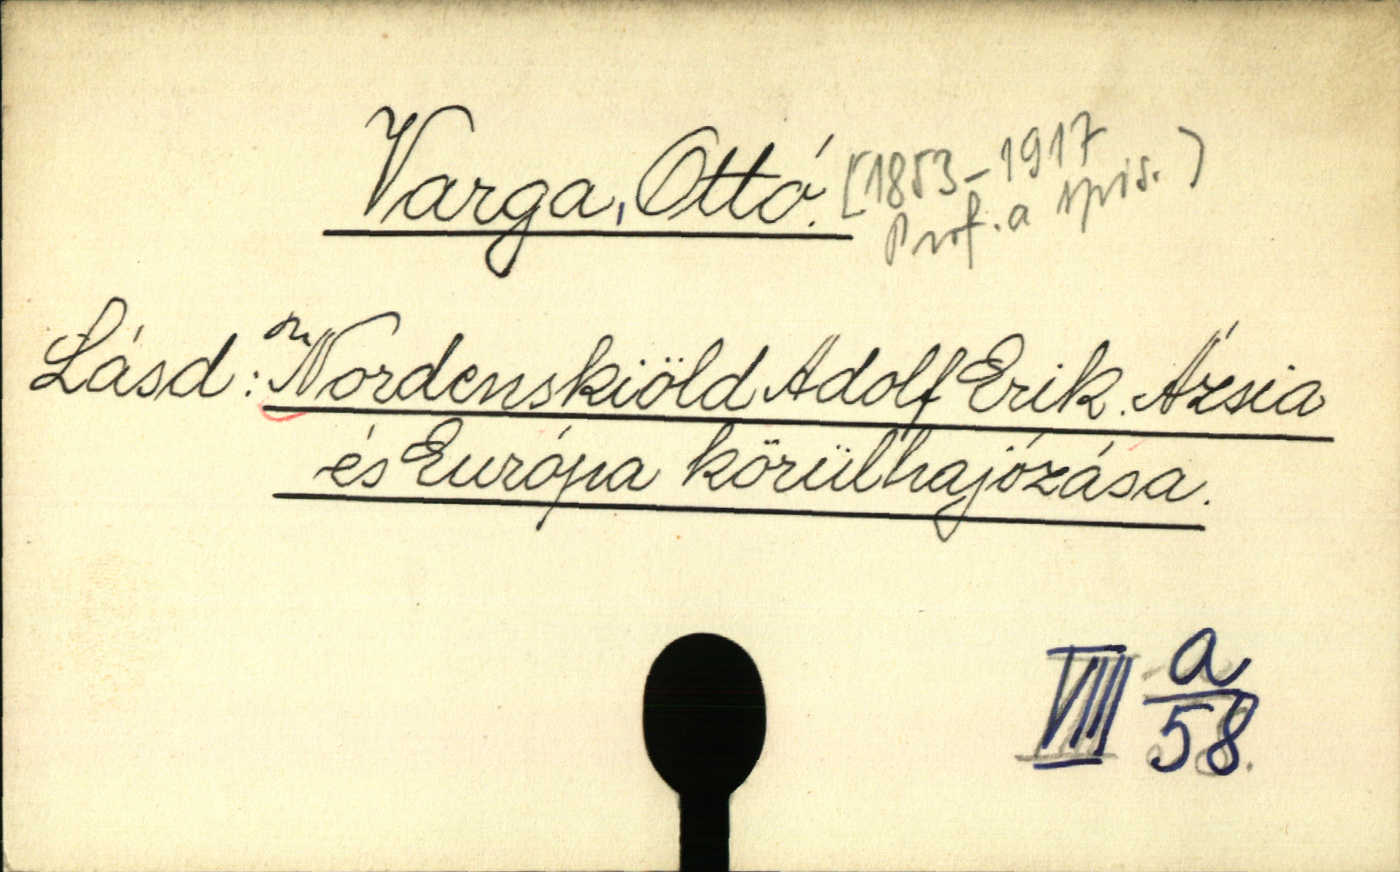 Varga, Ottó. [1853-1917
Prof. a spis.)
Lásd: Nordenskiöld Adolf Erik. Ázsia
és Európa körülhajózása.
VIII a/58.